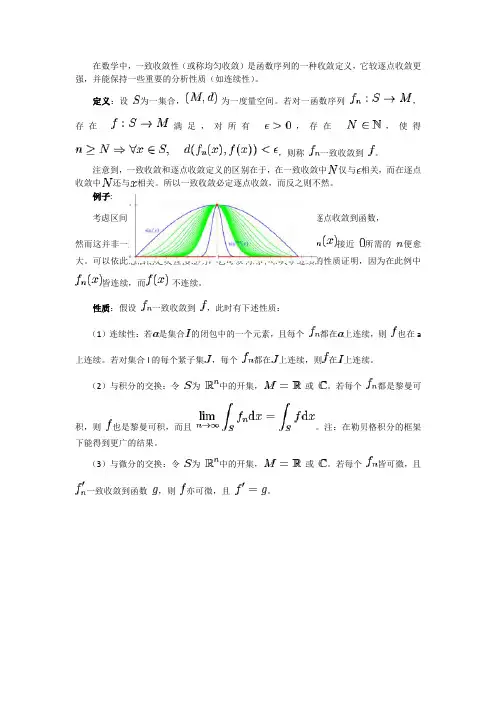 在数学中，一致收敛性（或称均匀收敛）是函数序列的一种收敛定义，它较逐点收敛更
强，并能保持一些重要的分析性质（如连续性）。
定义：设 S为一集合，(M, d) 为一度量空间。若对一函数序列 fₙ : S → M，
存在 f : S → M 满足，对所有 ϵ > 0，存在 N ∈ ℕ，使得
n ≥ N ⇒ ∀x ∈ S, d(fₙ(x), f(x)) < ϵ，则称 fₙ一致收敛到 f。
注意到，一致收敛和逐点收敛定义的区别在于，在一致收敛中N仅与ϵ相关，而在逐点
收敛中N还与x相关。所以一致收敛必定逐点收敛，而反之则不然。
例子:
考虑区间 逐点收敛到函数，
然而这并非一 n(x)接近 0所需的 n便愈
大。可以依此 的性质证明，因为在此例中
fₙ(x)皆连续，而f(x) 不连续。
性质：假设 fₙ一致收敛到 f，此时有下述性质：
（1）连续性：若a是集合I的闭包中的一个元素，且每个 fₙ都在a上连续，则 f也在 a
上连续。若对集合 I 的每个紧子集J，每个 fₙ都在J上连续，则f在I上连续。
（2）与积分的交换：令 S为 ℝⁿ中的开集，M = ℝ 或 ℂ。若每个 fₙ都是黎曼可
积，则 f也是黎曼可积，而且 lim n→∞ ∫_S fₙdx = ∫_S fdx。注：在勒贝格积分的框架
下能得到更广的结果。
（3）与微分的交换：令 S为 ℝⁿ中的开集，M = ℝ 或 ℂ。若每个 fₙ皆可微，且
f′ₙ一致收敛到函数 g，则 f亦可微，且 f′ = g。